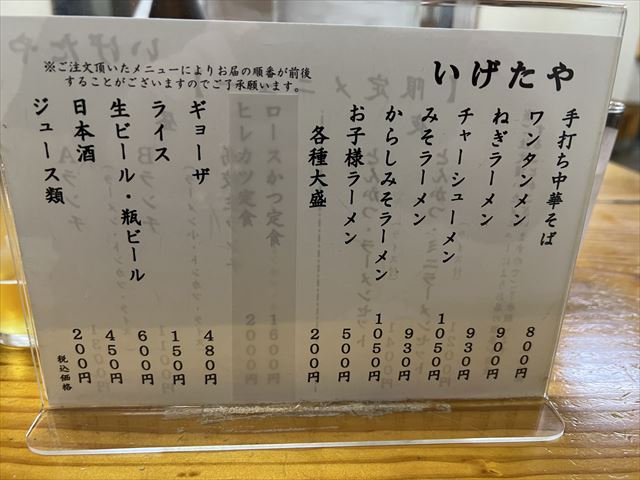 いげたや
※ご注文頂いたメニューによりお届の順番が前後
することがございますのでご了承願います。
手打ち中華そば 800円
ワンタンメン 900円
ねぎラーメン 930円
チャーシューメン 1050円
みそラーメン 930円
からしみそラーメン 1050円
お子様ラーメン 500円
各種大盛 200円
ロースかつ定食 1600円
ヒレカツ定食 2000円
ギョーザ 480円
ライス 150円
生ビール・瓶ビール 600円
日本酒 450円
ジュース類 200円
税込価格